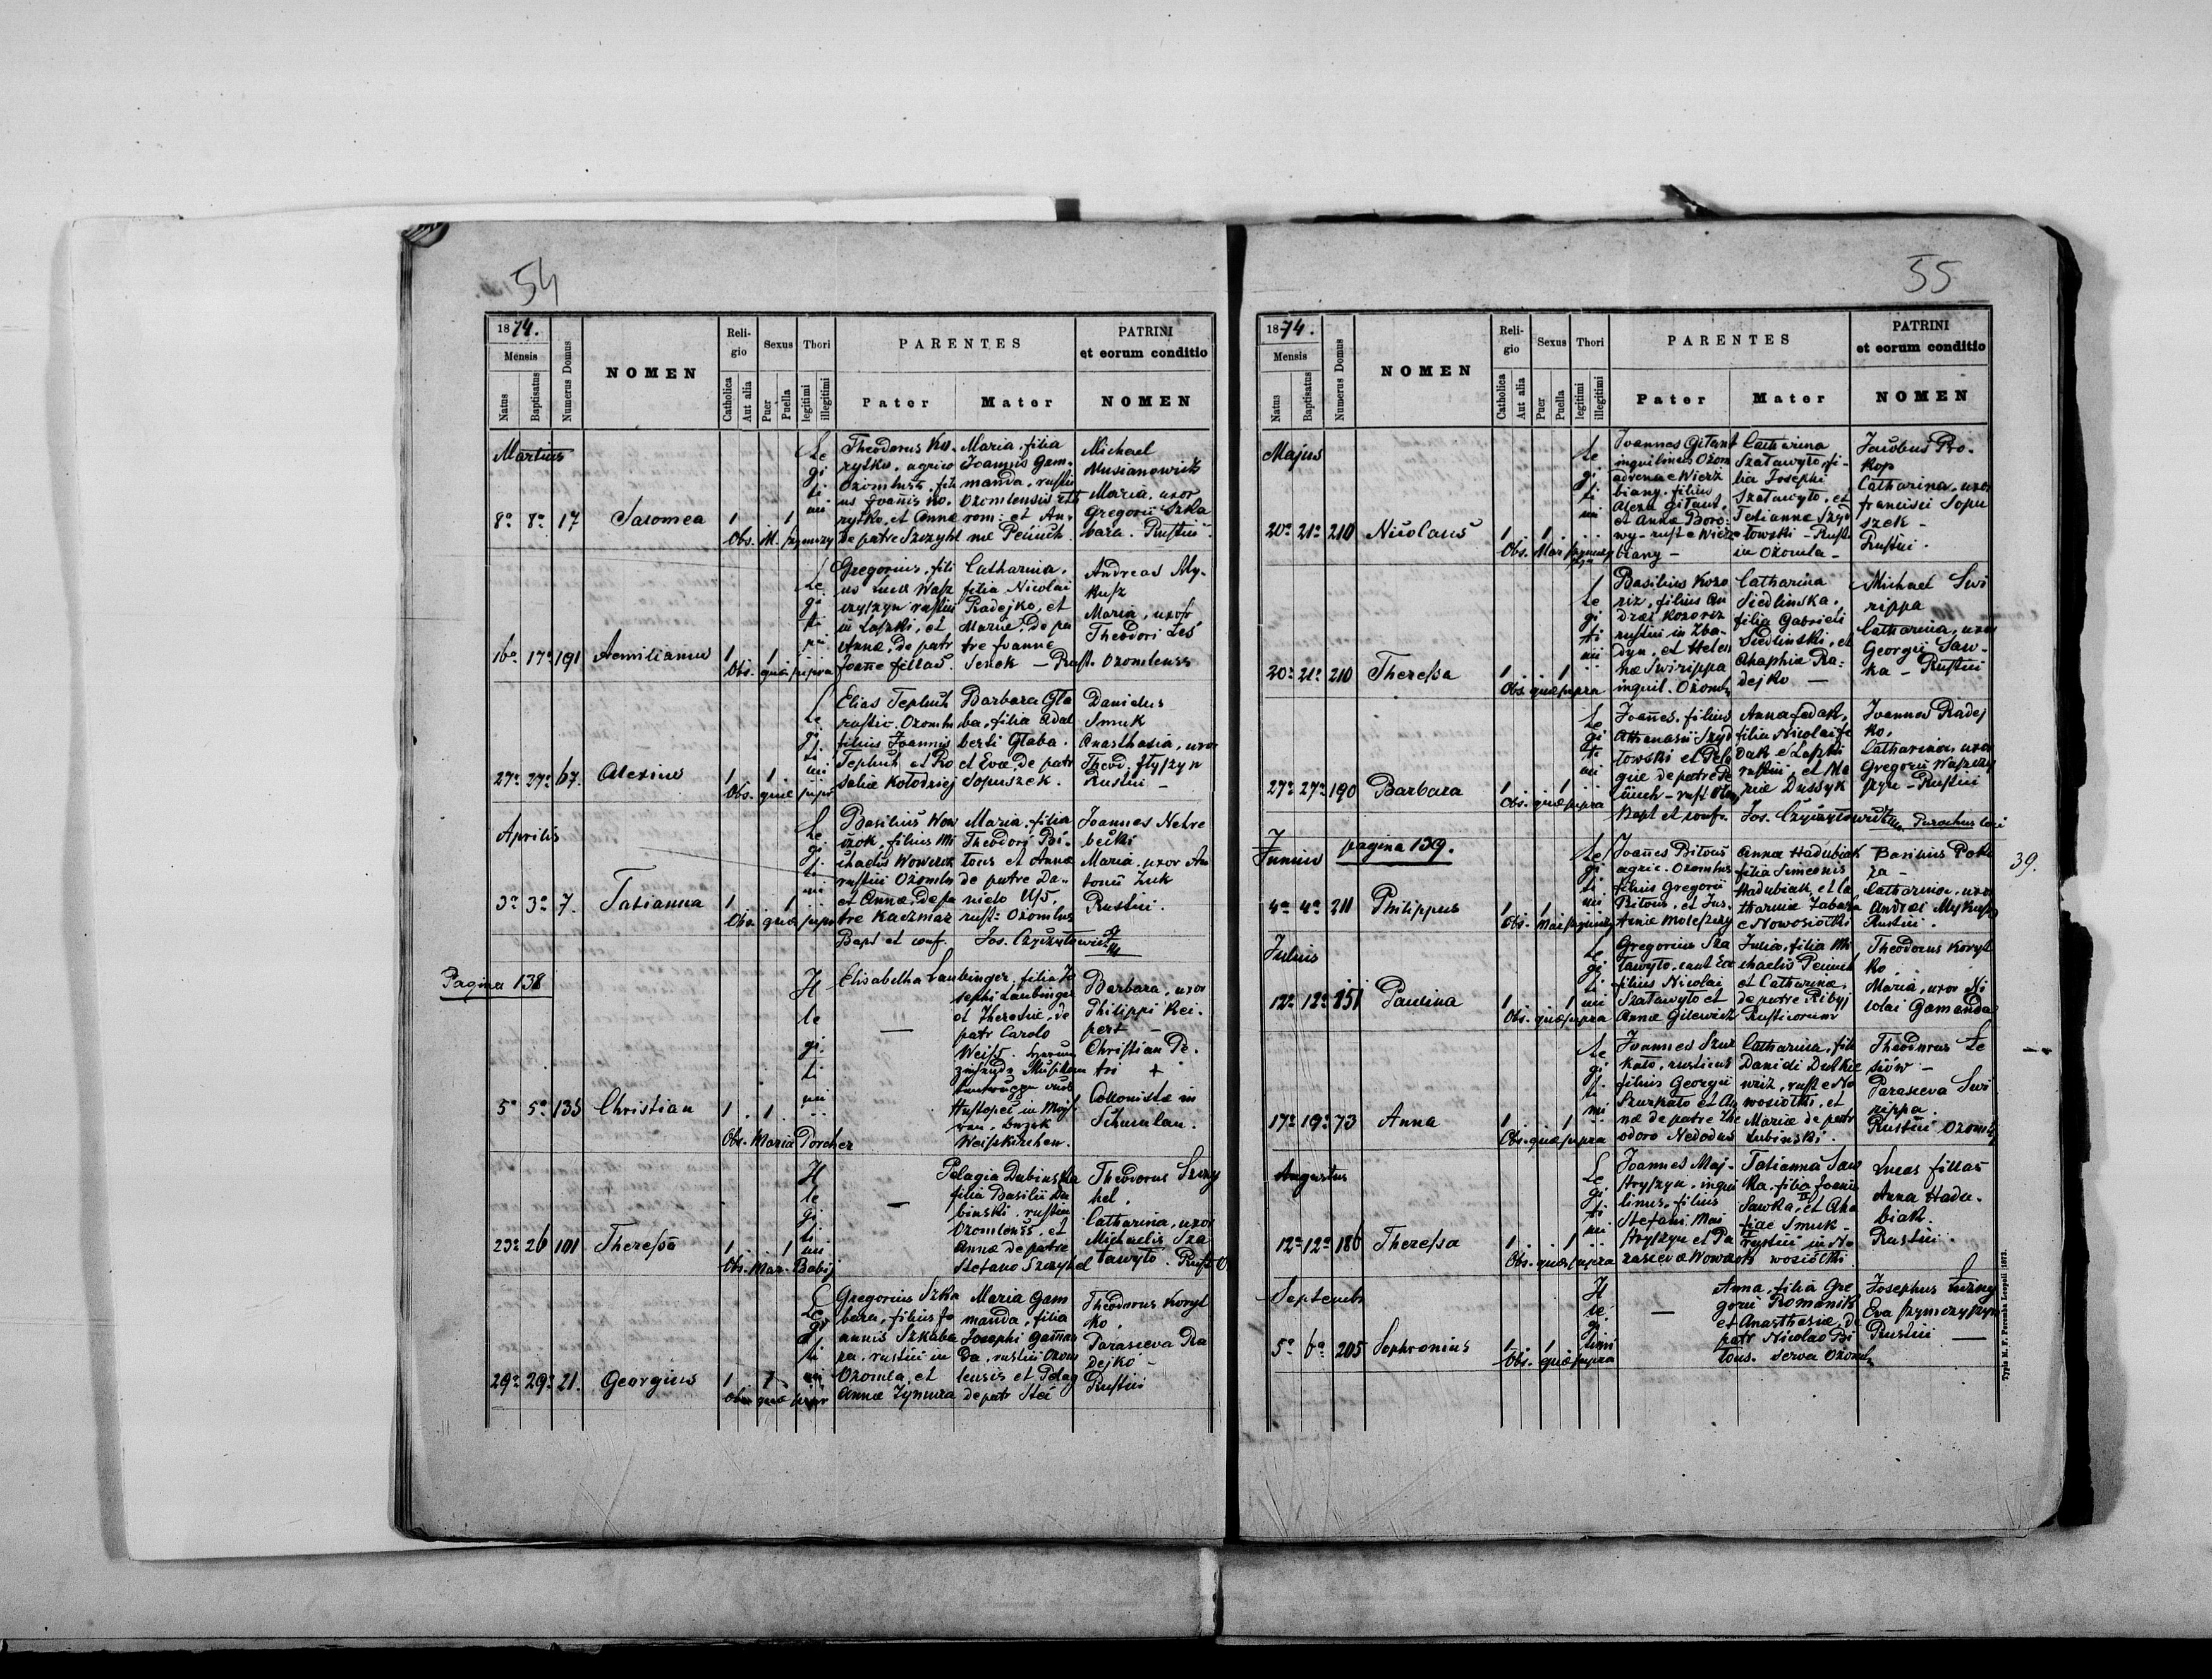 54
1874.
Mensis
Natus
Baptisatus
Numerus Domus
NOMEN
Reli-
gio
Catholica
Aut alia
Sexus
Puer
Puella
Thori
legitimi
illegitimi
PARENTES
Pater
Mater
PATRINI
et eorum conditio
NOMEN
Martius
8a 8a 17 Saromea 1 1
Le
gi
ti
mi
Theodorus Ko-
rytko, agrico
Ozomlens. fili
us Joannis Ko-
rytko, et Annae
de patre Szczyhl
Maria, filia
Joannis Gam-
manda, rustici
Ozomlensis
rom: et An-
nae Peciuch.
Michael
Musianowicz
Maria, uxor
Gregorii Szka
bara. Rustici.
Obs. M.
16a 17a 191 Aemilianus 1 1
Le
gi
ti
mi
Gregorius, fili
us Lucae Wasz
czyszyn rustici
in Laszki, et
Annae, de patr
Joanne Fillas.
Catharina,
filia Nicolai
Radejko, et
Mariae, de pa
tre Joanne
Senek — Rust. Ozomlenses
Andreas My-
kusz
Maria, uxor
Theodori Les
Obs. quae supra
27a 27a 67. Alexius 1 1
Le
gi
ti
mi
Elias Tepluch
rustic. Ozomln
filius Joannis
Tepluch et Ro
saliae Kolodziej
Barbara Gla
ba, filia Adal
berti Glaba.
et Evae, de patr
Sopuszek.
Danielus
Smuk
Anasthasia, uxor
Theod. Hyszyn
Rustici —
Obs. quae supr
Aprilis
3a 3a 7. Tatianna 1 1
Le
gi
ti
mi
Basilius Wow
czok, filius Mi
chaelis Wowczok
rustici Ozomln
et Annae, de pa
tre Kaczmar
Maria, filia
Theodori Bi-
tous et Annae
de patre Da-
nielo Us,
rust: Ozomlens
Joannes Nehre
becki
Maria uxor An
tonii Zuk
Rustici.
Obs. quae supr
Bapt et conf. Jos. Czyczyłowicz
Pagina 138
5a 5a 135 Christian 1 1
Il
le
gi
ti
mi
—
Elisabetha Laubinger, filia Jo
sephi Laubinger
et Theresiae, de
patr Carolo
Weiss.
Hustopec in Mäh
ren. Bezirk
Weisskirchen.
Barbara, uxor
Philippi Rei-
pert —
Christian Pe-
tri +
Collonistae in
Schumlau.
Obs. Maria Porcher
23a 26 101 Theressa 1 1
Il
le
gi
ti
mi
—
Pelagia Dubinska
filia Basilii Du
binski, rustici
Ozomlenss, et
Annae de patre
Stefano Szczyhel
Theodorus Szczy
hel.
Catharina, uxor
Michaelis Sza
tawyło. Rust. O
Obs. Mar. Babij
29a 29a 21. Georgius 1 1
Le
gi
ti
mi
Gregorius Szka
bara, filius Jo
annis Szkaba
ra, rustici in
Ozomla, et
Annae Zymura
Maria Gam
manda, filia
Josephi Gamma
da, rustici Ozom
lensis et Pelag
de patr Stec
Theodorus Koryt
ko.
Parasceva Ra
dejko —
Rustici
Obs. quae supr
55
1874.
Mensis
Natus
Baptisatus
Numerus Domus
NOMEN
Reli-
gio
Catholica
Aut alia
Sexus
Puer
Puella
Thori
legitimi
illegitimi
PARENTES
Pater
Mater
PATRINI
et eorum conditio
NOMEN
Majus
20a 21a 210 Nicolaus 1 1
Le
gi
ti
mi
Joannes Gitant
inquilinus Ozom
advena e Wierz
biany, filius
Alexa Gitant,
et Annae Boro-
wy - rust e Wierz
biany —
Catharina
Szatawyło, fi-
lia Josephi
Szatawyło, et
Tatianna Szyd
łowski - Rust
in Ozomla —
Jacobus Pro-
kop
Catharina, uxor
Francisci Sopu
szek —
Rustici.
Obs. Mar
20a 21a 210 Theressa 1 1
Le
gi
ti
mi
Basilius Kozo
riz, filius An
dreae Kozoriz
rustici in Zba-
dyn, et Helen
nae Swirippa
inquil. Ozomln
Catharina
Siedlinska,
filia Gabrieli
Siedlinski, et
Ahaphiae Ra-
dejko —
Michael Swi
rippa
Catharina, uxor
Georgii Saw-
ka — Rustici
Obs. quae supra
27a 27a 190 Barbara 1 1
Le
gi
ti
mi
Joannes, filius
Athanasii Szyd
łowski et Pela
giae de patre Pe
ciuch - rust Ozom
Anna Fedak,
filia Nicolai Fe
dak e Laszki
rustici, et Ma
riae Dussyk
Joannes Radej
ko,
Catharina, uxor
Gregorii Waszczy
szyn — Rustici
Obs. quae supra
Bapt et conf. Jos. Czyczyłowicz Parochus loci
Junius pagina 139.
39.
4a 4a 211 Philippus 1 1
Le
gi
ti
mi
Joannes Bitous
agric. Ozomlens
filius Gregorii
Bitous, et Jus-
tinae Moleszczy
Anna Hadubiak
filia Simeonis
Hadubiak, et Ca
tharinae Zabara
e Nowosiołki
Basilius Poho
ra —
Catharina, uxor
Andreae Mykusz
Rustici.
Obs. Mar
Julius
12a 12a 151 Paulina 1 1
Le
gi
ti
mi
Gregorius Sza
tawyło,
filius Nicolai
Szatawyło et
Annae Gilewicz
Julia, filia Mi
chaelis Peciuch
et Catharinae,
de patre Ribyj
Rusticorum
Theodorus Koryt
ko.
Maria, uxor Ni
colai Gamanda
Obs. quae supra
17a 19a 73 Anna 1 1
Le
gi
ti
mi
Joannes Szur
kało, rusticus
filius Georgii
Szurkało et An
nae de patre The
odoro Nedodus
Catharina, filia
Danieli Dutkie
wicz, rust e No
wosiołki, et
Mariae de patr
Lubinski.
Theodorus Le
siów —
Parasceva Swi
rippa.
Rustici Ozomln
Obs. quae supra
Augustus
12a 12a 186 Theressa 1 1
Le
gi
ti
mi
Joannes Maj-
stryszyn, inqui
linus, filius
Stefani Maj
stryszyn et Pa
rascevae Wowczok
Tatianna Saw
ka, filia Joannis
Sawka, et Aha
fiae Smuk —
rustici in No
wosiołki
Lucas Fillas
Anna Hadu-
biak.
Rustici.
Obs. quae supra
Septembr
5a 6a 205 Sophronius 1 1
Il
le
gi
timi
—
Anna, filia Gre
gorii Romanik
et Anasthasiae, de
patr Nicolao Bi
tous. serva Ozomln
Josephus
Eva Szymczyszyn
Rustici —
Obs. quae supra
Typis M. F. Poremba Leopoli 1873.